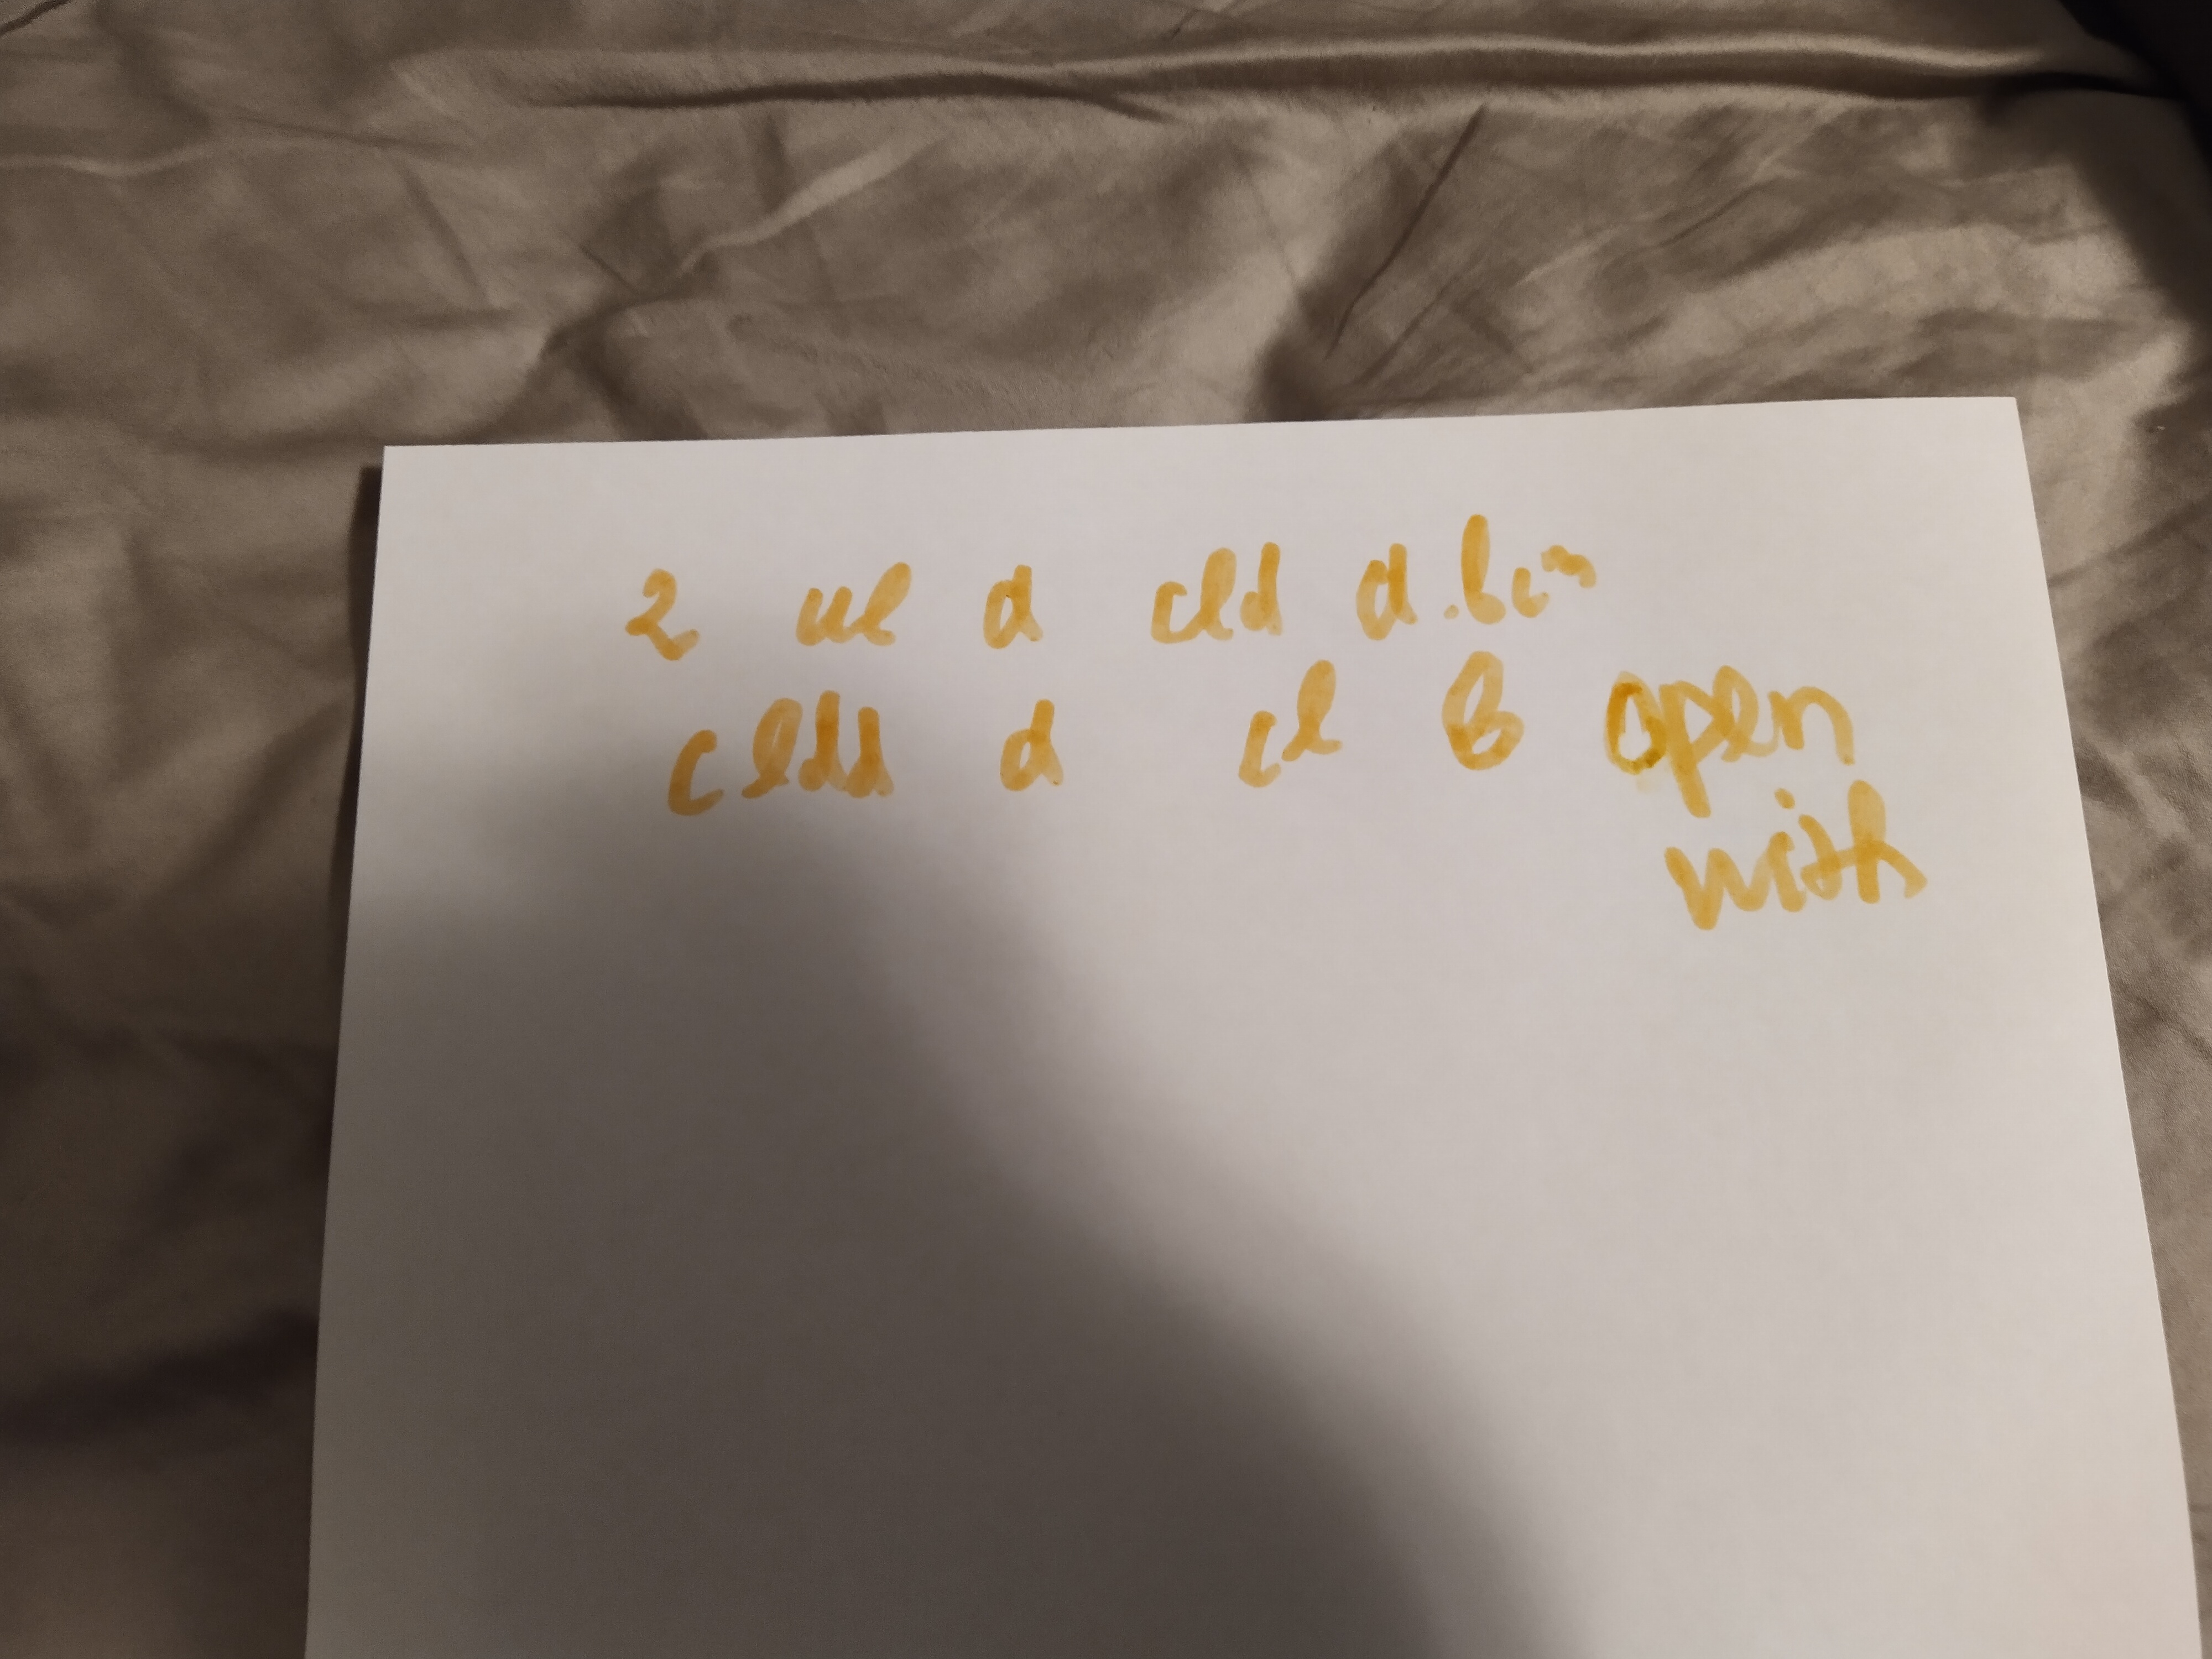 2 ul d cld d.bin
cldd d cl B open
with